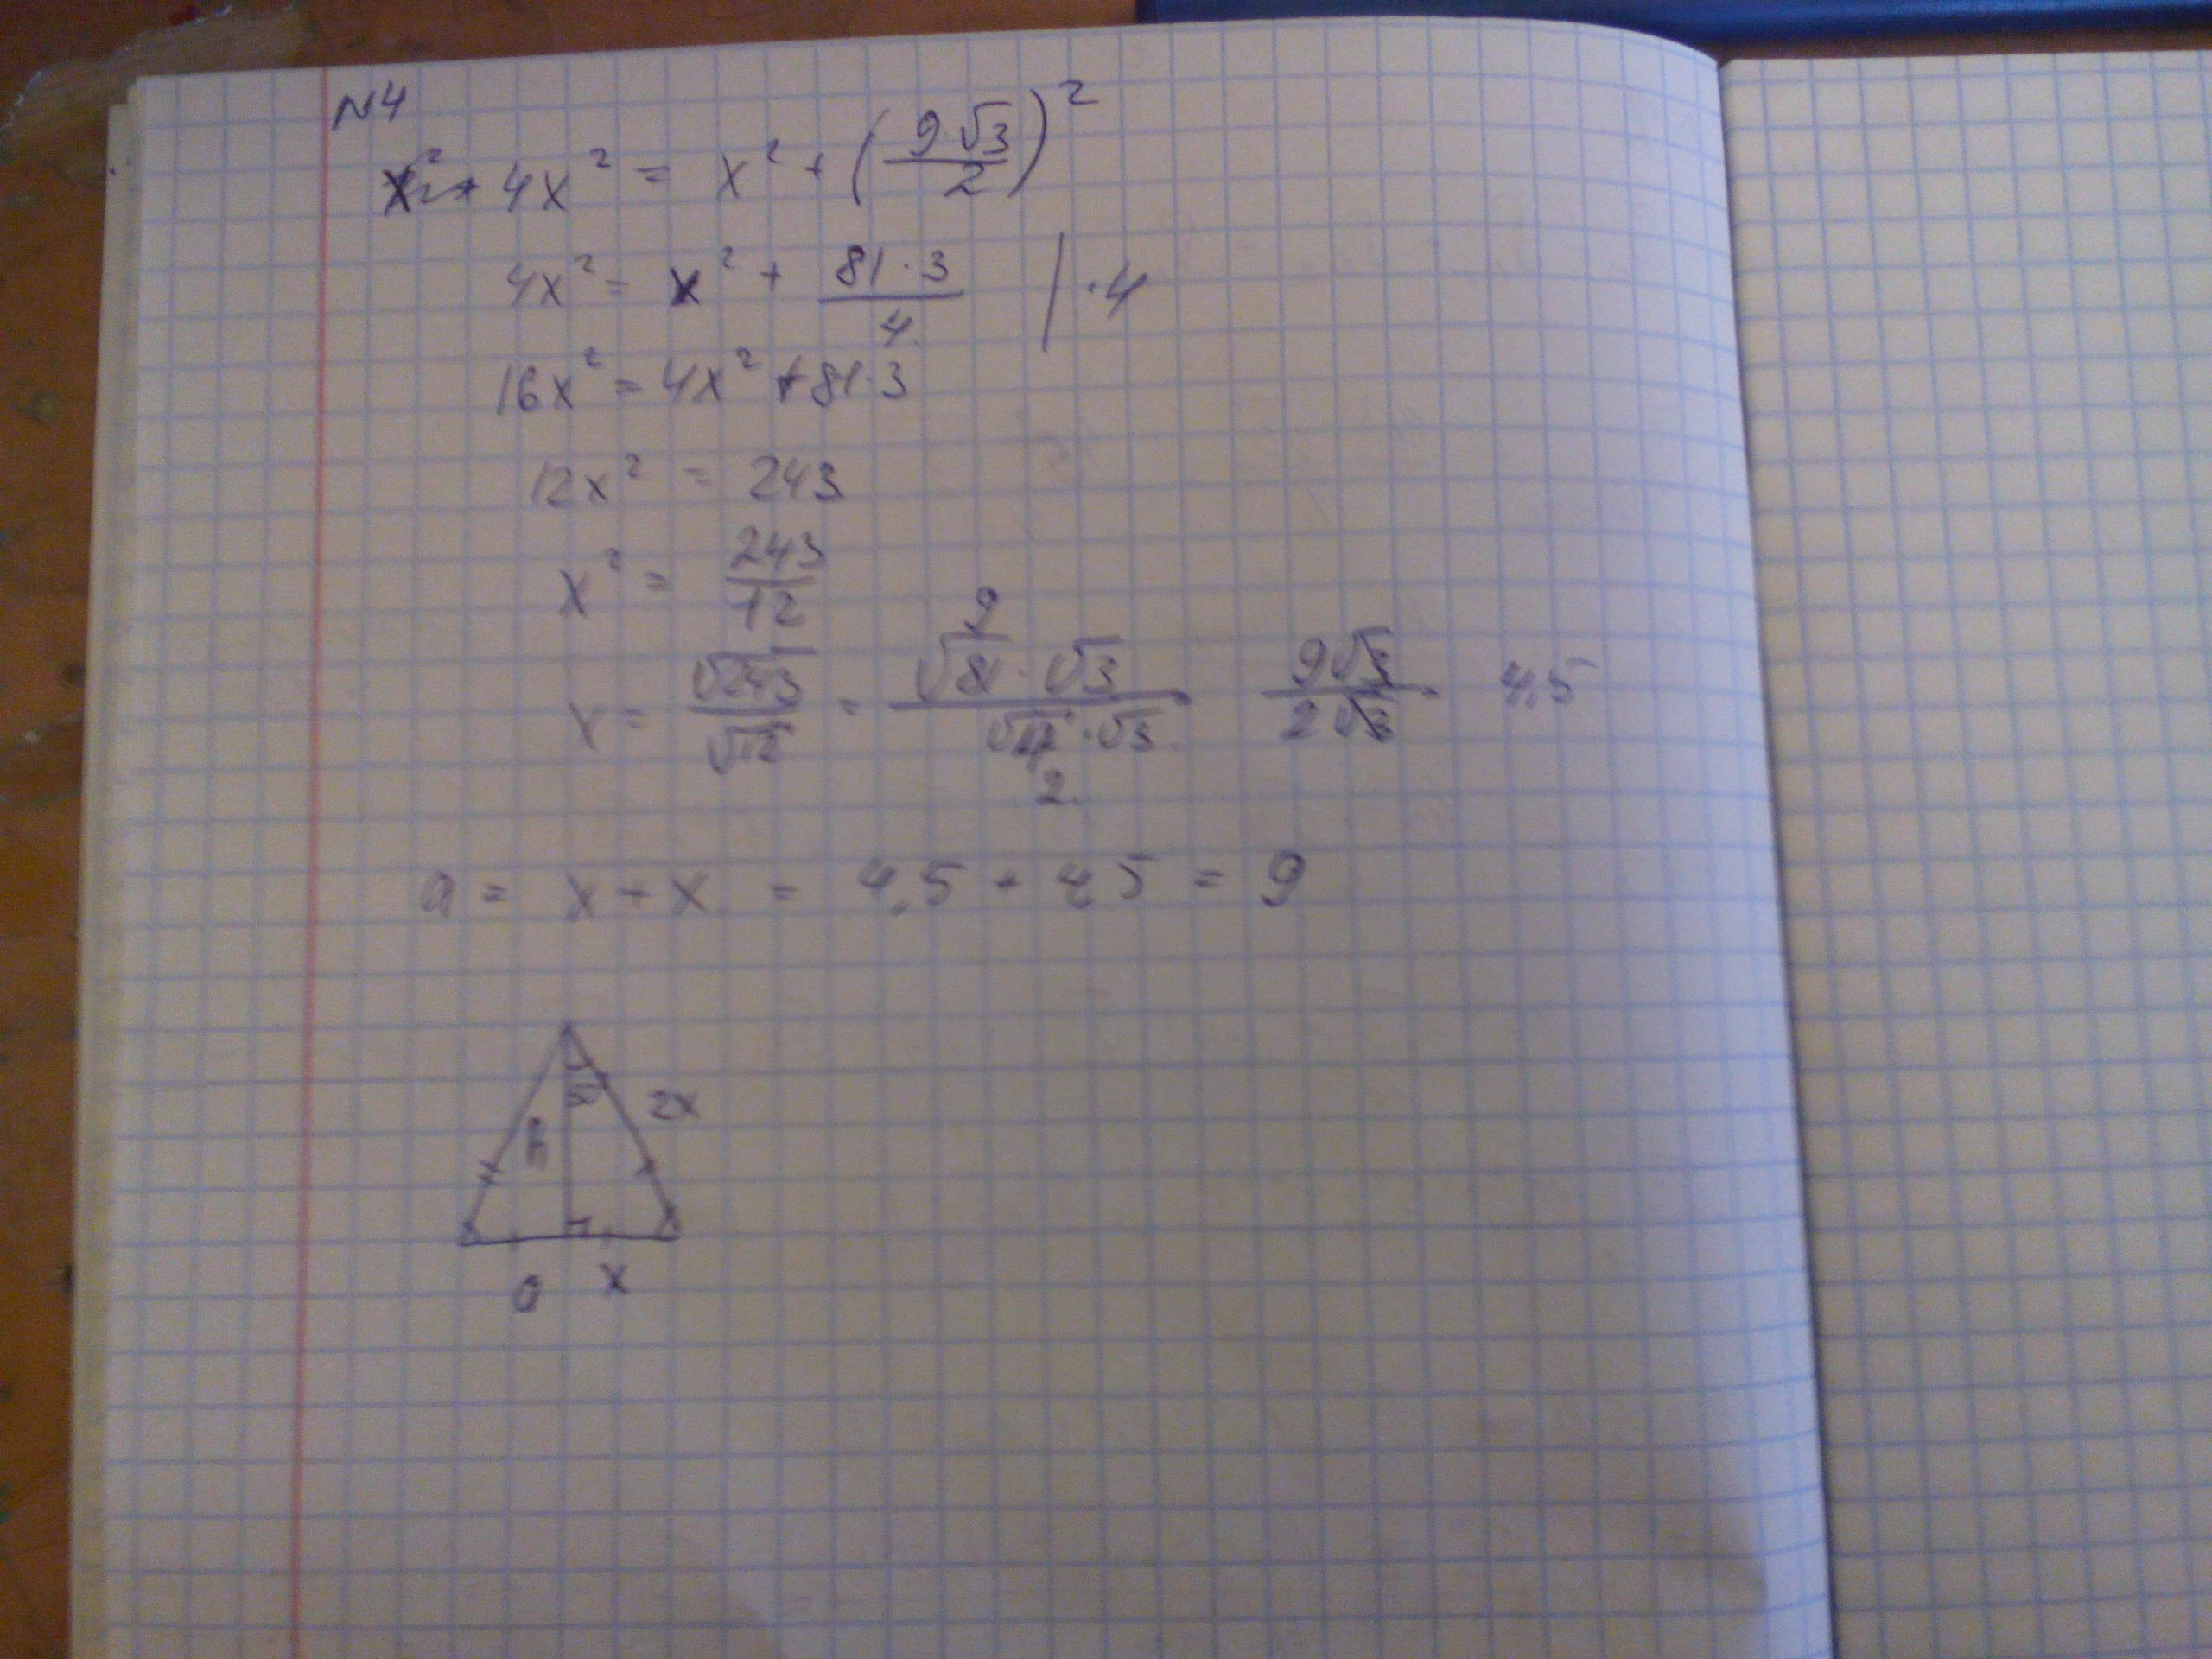 N4
4x² = x² + (9·√3/2)²
4x² = x² + 81·3/4 | ·4
16x² = 4x² + 81·3
12x² = 243
x² = 243/12
x = √243/√12 = √81·√3/√4·√3 9√3/2√3 4,5
9
2
a = x + x = 4,5 + 4,5 = 9
2x
h
a x